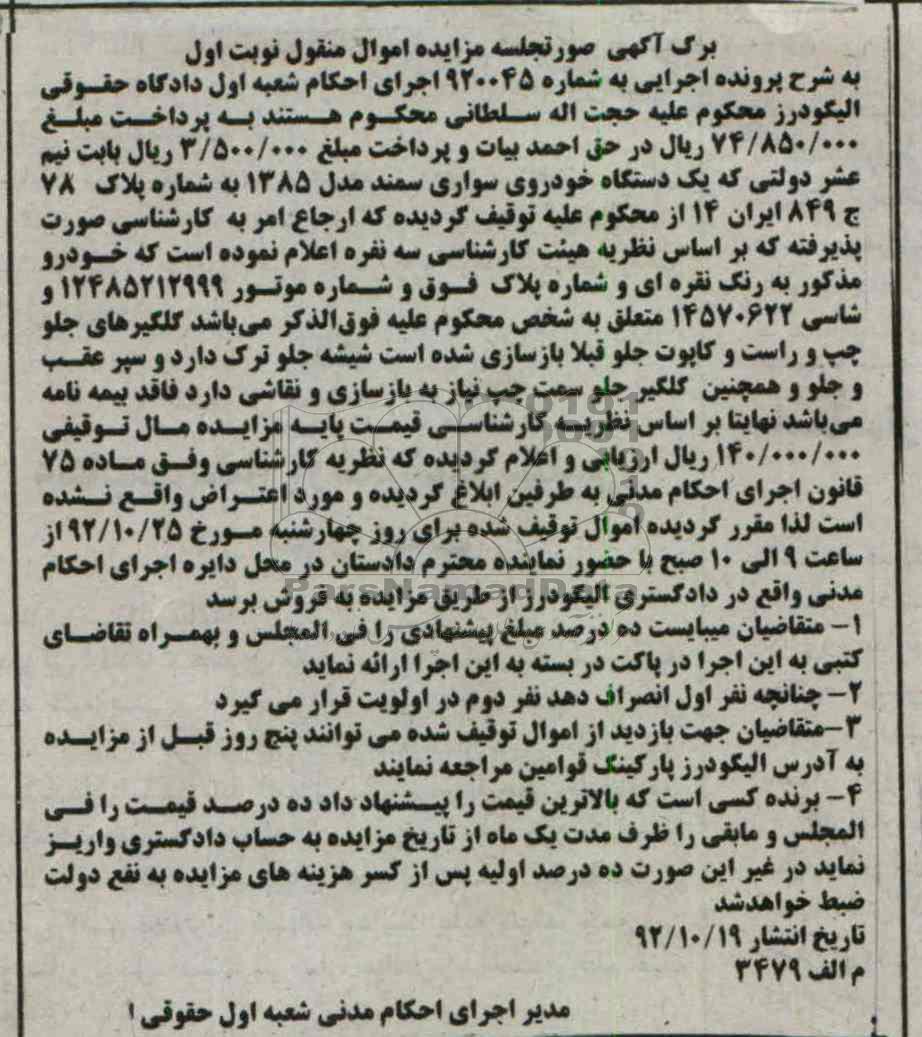 برگ آگهی صورتجلسه مزایده اموال منقول نوبت اول
به شرح پرونده اجرایی به شماره ۹۲۰۰۴۵ اجرای احکام شعبه اول دادگاه حقوقی
الیگودرز محکوم علیه حجت اله سلطانی محکوم هستند به پرداخت مبلغ
۷۴/۸۵۰/۰۰۰ ریال در حق احمد بیات و پرداخت مبلغ ۳/۵۰۰/۰۰۰ ریال بابت نیم
عشر دولتی که یک دستگاه خودروی سواری سمند مدل ۱۳۸۵ به شماره پلاک ۷۸
ج ۸۴۹ ایران ۱۴ از محکوم علیه توقیف گردیده که ارجاع امر به کارشناسی صورت
پذیرفته که بر اساس نظریه هیئت کارشناسی سه نفره اعلام نموده است که خودرو
مذکور به رنگ نقره ای و شماره پلاک فوق و شماره موتور ۱۲۴۸۵۲۱۲۹۹۹ و
شاسی ۱۴۵۷۰۶۲۲ متعلق به شخص محکوم علیه فوق‌الذکر می‌باشد گلگیرهای جلو
چپ و راست و کاپوت جلو قبلا بازسازی شده است شیشه جلو ترک دارد و سپر عقب
و جلو و همچنین گلگیر جلو سمت چپ نیاز به بازسازی و نقاشی دارد فاقد بیمه نامه
می‌باشد نهایتا بر اساس نظریه کارشناسی قیمت پایه مزایده مال توقیفی
۱۴۰/۰۰۰/۰۰۰ ریال ارزیابی و اعلام گردیده که نظریه کارشناسی وفق ماده ۷۵
قانون اجرای احکام مدنی به طرفین ابلاغ گردیده و مورد اعتراض واقع نشده
است لذا مقرر گردیده اموال توقیف شده برای روز چهارشنبه مورخ ۹۲/۱۰/۲۵ از
ساعت ۹ الی ۱۰ صبح با حضور نماینده محترم دادستان در محل دایره اجرای احکام
مدنی واقع در دادگستری الیگودرز از طریق مزایده به فروش برسد
ParsNamadData
۱- متقاضیان میبایست ده درصد مبلغ پیشنهادی را فی المجلس و بهمراه تقاضای
کتبی به این اجرا در پاکت در بسته به این اجرا ارائه نماید
۲- چنانچه نفر اول انصراف دهد نفر دوم در اولویت قرار می گیرد
۳-متقاضیان جهت بازدید از اموال توقیف شده می توانند پنج روز قبل از مزایده
به آدرس الیگودرز پارکینگ قوامین مراجعه نمایند
۴- برنده کسی است که بالاترین قیمت را پیشنهاد داد ده درصد قیمت را فی
المجلس و مابقی را ظرف مدت یک ماه از تاریخ مزایده به حساب دادگستری واریز
نماید در غیر این صورت ده درصد اولیه پس از کسر هزینه های مزایده به نفع دولت
ضبط خواهدشد
تاریخ انتشار ۹۲/۱۰/۱۹
م الف ۳۴۷۹
مدیر اجرای احکام مدنی شعبه اول حقوقی ا